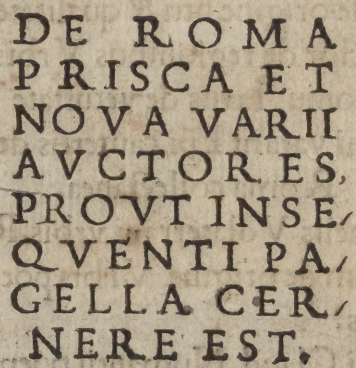 DE ROMA
PRISCA ET
NOVA VARII
AVCTORES,
PROVT INSE/
QVENTI PA/
GELLA CER/
NERE EST.